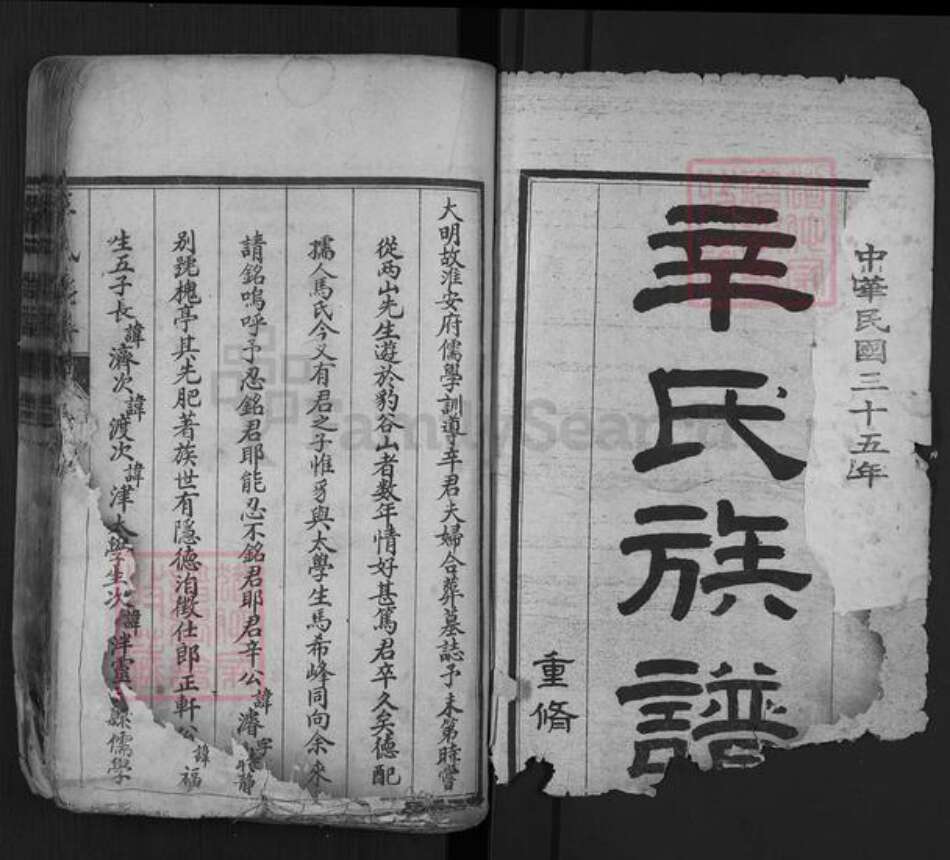 中華民國三十五年
辛氏族譜
重脩
大明故淮安府儒學訓導辛君夫婦合葬墓誌予未第時嘗
從西山先生遊於豹谷山者数年情好甚篤君卒久矣德配
孺人馬氏今又有君之子惟豸與太學生馬希峰同向余来
請銘嗚呼予忍銘君耶能忍不銘君耶君辛公諱濬字靜
别號槐亭其先肥著族世有隱德洎徵仕郎正軒公諱福
生五子長諱濟次諱渡次諱津太學生次諱泮靈縣儒學
FamilySearch